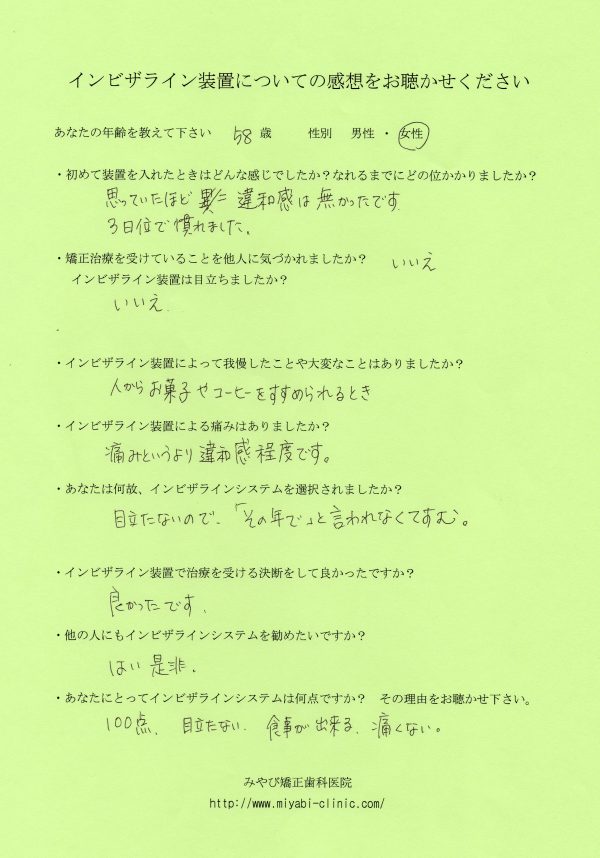 インビザライン装置についての感想をお聴かせください
あなたの年齢を教えて下さい　58 歳　性別　男性 ・ 女性
・初めて装置を入れたときはどんな感じでしたか？なれるまでにどの位かかりましたか？
思っていたほど 違和感は無かったです
3日位で慣れました。
・矯正治療を受けていることを他人に気づかれましたか？　いいえ
インビザライン装置は目立ちましたか？
いいえ.
・インビザライン装置によって我慢したことや大変なことはありましたか？
人からお菓子やコーヒーをすすめられるとき
・インビザライン装置による痛みはありましたか？
痛みというより違和感程度です。
・あなたは何故、インビザラインシステムを選択されましたか？
目立たないので、「その年で」と言われなくてすむ。
・インビザライン装置で治療を受ける決断をして良かったですか？
良かったです.
・他の人にもインビザラインシステムを勧めたいですか？
はい 是非.
・あなたにとってインビザラインシステムは何点ですか？　その理由をお聴かせ下さい。
100点、目立たない、食事が出来る、痛くない。
みやび矯正歯科医院
http://www.miyabi-clinic.com/